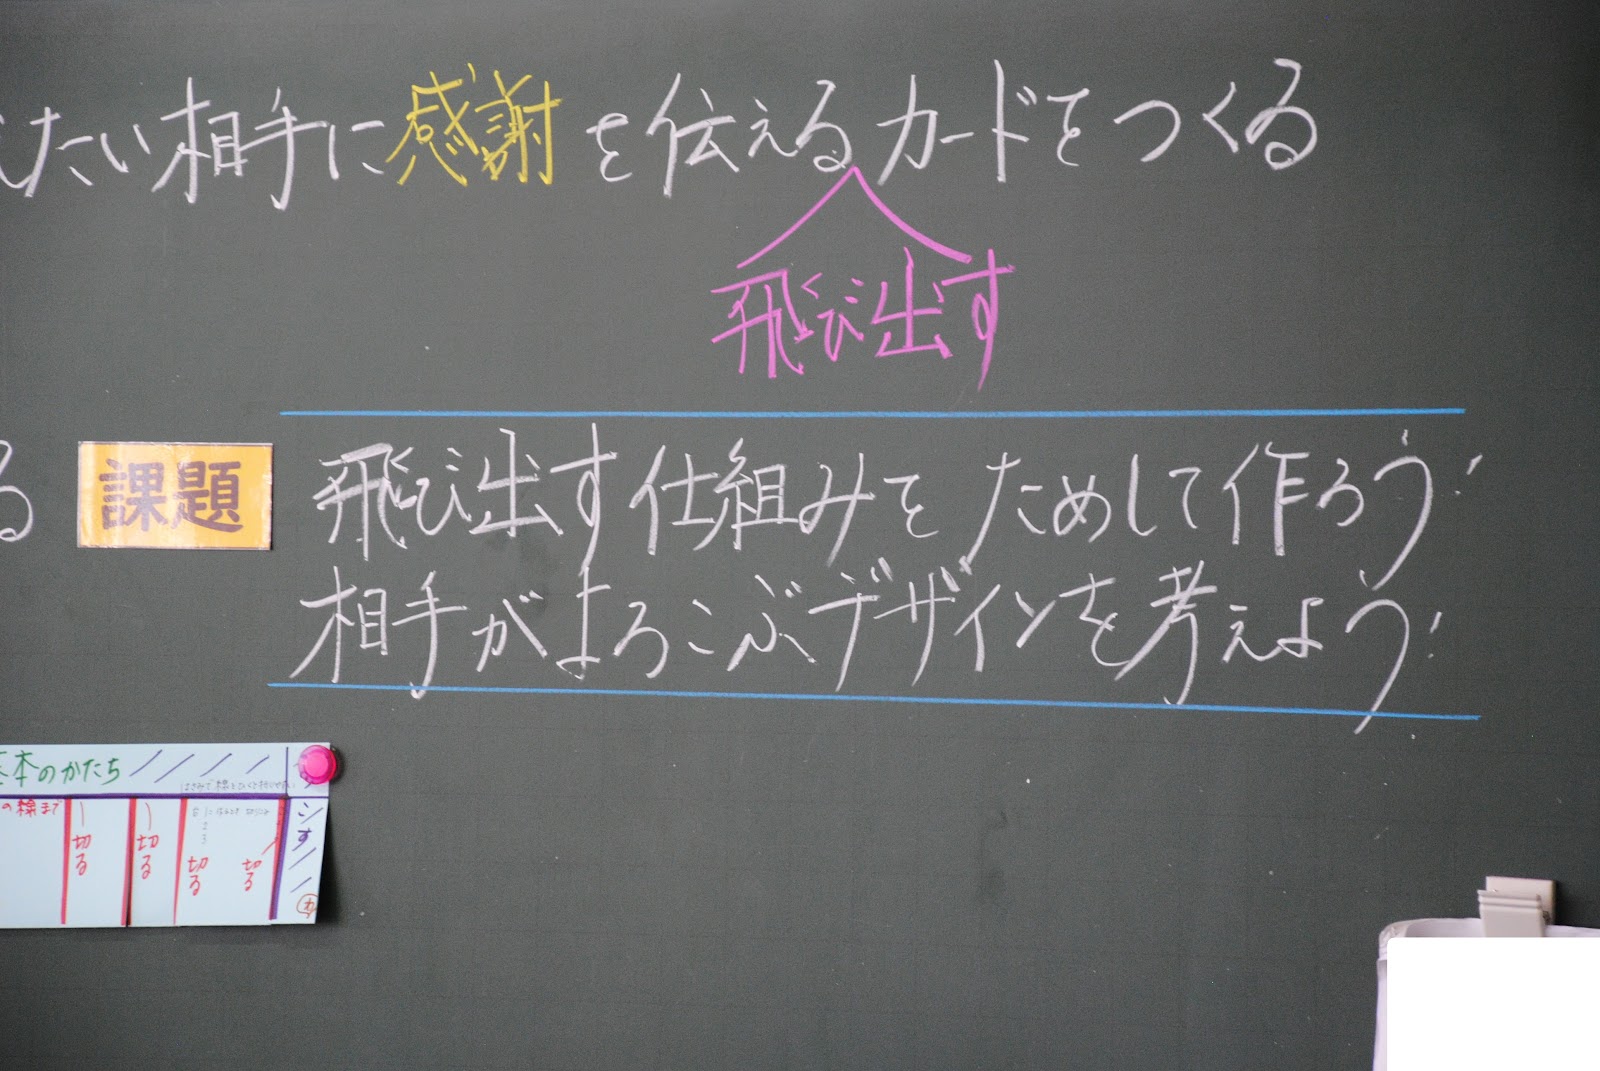 たい相手に感謝を伝えるカードをつくる
飛び出す
る
課題
飛び出す仕組みをためして作ろう!
相手がよろこぶデザインを考えよう!
本のかたち
の線まで
切る
切る
切る
切る